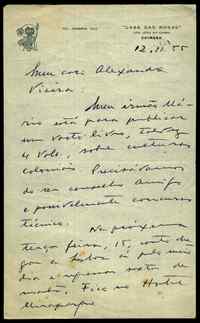 "CASA DAS ROSAS"
COIMBRA
12.11.55
Meu caro Alexandre
Vieira:
Meu irmão Má-
rio está para publicar
um vasto livro, talvez
4 vols., sobre culturas
coloniais. Precisávamos
do seu conselho amigo
e possivelmente concurso
técnico.
Na próxima
terça feira, 15, conto che-
gar a Lisboa
dia
muito. Fico no Hotel